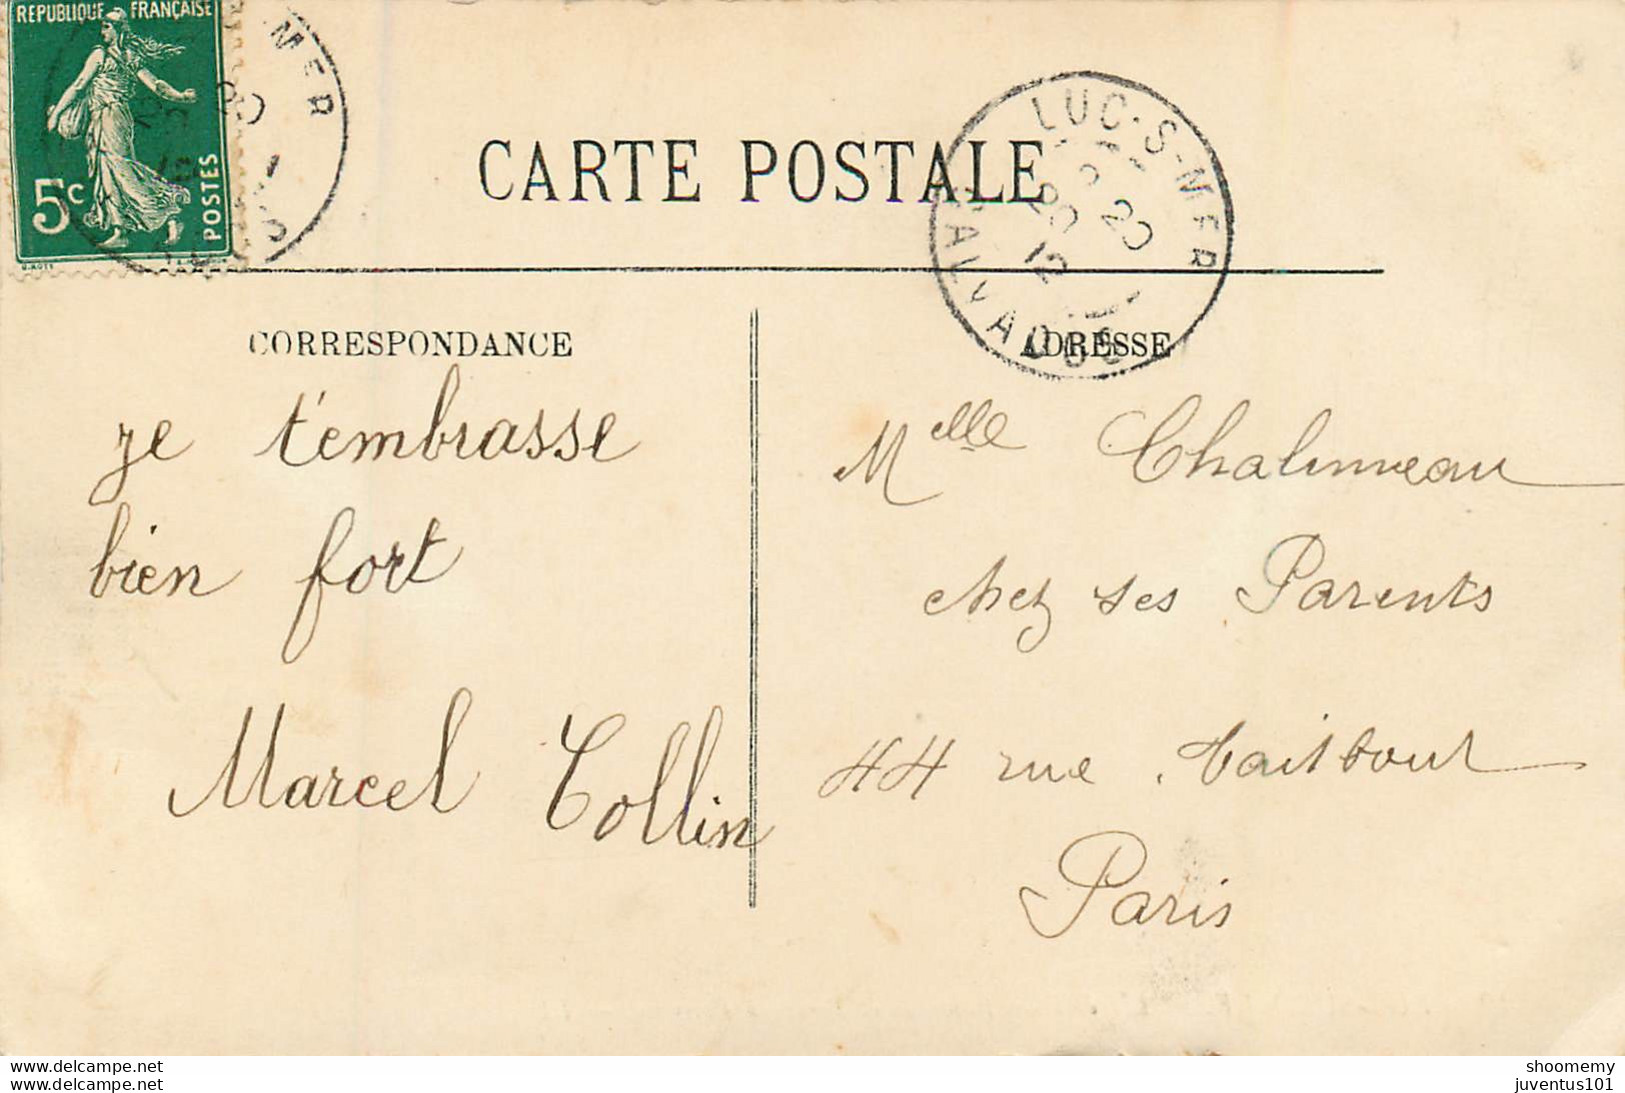 REPUBLIQUE FRANÇAISE
5c
POSTES
MER
20
CARTE POSTALE
LUC-S-MER
20
12
CALVADOS
CORRESPONDANCE
ADRESSE
je t'embrasse
bien fort
Marcel Collin
Melle Chalumeau
chez ses Parents
44 rue Taitbout
Paris
delcampe.net
delcampe.net
shoomemy
juventus101